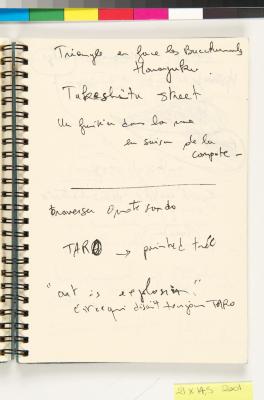 Triangle en face les
Harajuku.
Takeshita street
Un fusilier dans la rue
en saison de la
compote -
traverser Omote sando
TARO → painted tree
"art is explosion"
c'est ce qui disait toujours TARO
21 x 14,5 2001